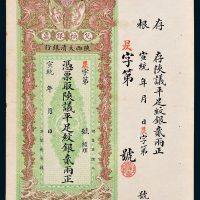 存根
存陝議平足紋銀貳兩正
宣統 年 月 日
字第 號
陝西大清銀行
字第 號
憑票取陝議平足紋銀貳兩正
宣統 年 月 日